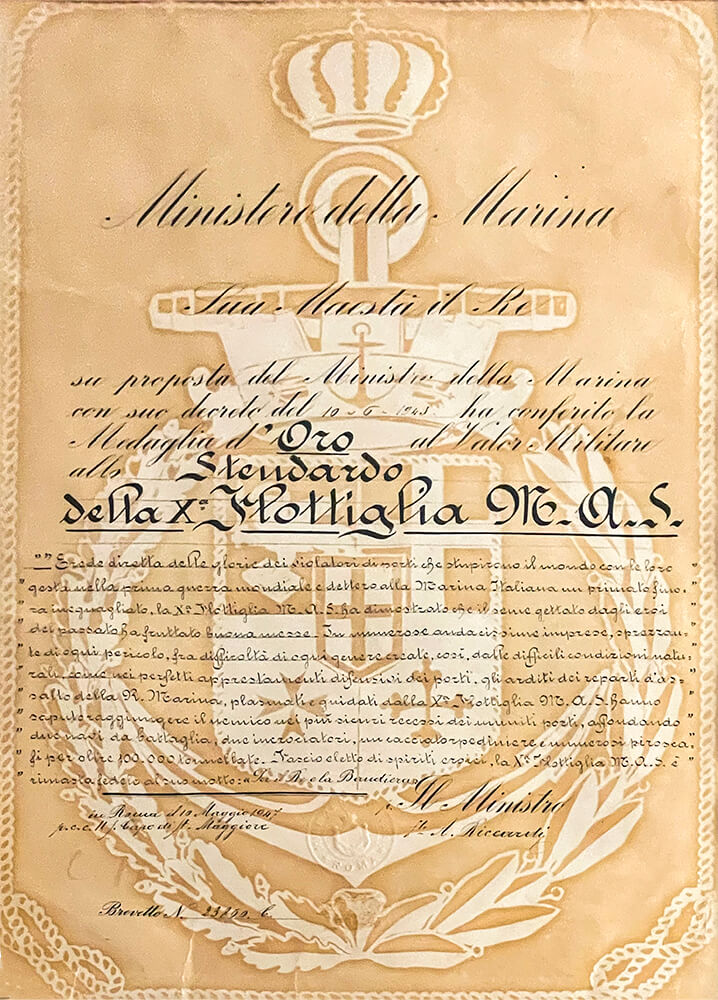 Ministero della Marina
Sua Maestà il Re
su proposta del Ministro della Marina
con suo decreto del 10-6-1943. ha conferito la
Medaglia d'Oro al Valor Militare
allo Stendardo
della Xª Flottiglia M.A.S.
"" Erede diretta delle glorie dei violatori di porti che stupirono il mondo con le loro
" gesta nella prima guerra mondiale e dettero alla Marina Italiana un primato fino- "
" ra ineguagliato, la Xª Flottiglia M.A.S. ha dimostrato che il seme gettato dagli eroi "
" del passato ha fruttato buona messe. In numerose audacissime imprese, sprezzan- "
" te di ogni pericolo, fra difficoltà di ogni genere create, così, dalle difficili condizioni natu- "
" rali, come nei perfetti apprestamenti difensivi dei porti, gli arditi dei reparti d'as- "
" salto della R. Marina, plasmati e guidati dalla Xª Flottiglia M.A.S. hanno "
" saputo raggiungere il nemico nei più sicuri recessi dei muniti porti, affondando "
" due navi da battaglia, due incrociatori, un cacciatorpediniere e numerosi pirosca- "
" fi per oltre 100.000 tonnellate. Fascio eletto di spiriti eroici, la Xª Flottiglia M.A.S. è "
" rimasta fedele al suo motto: "Per il Re e la Bandiera"
Roma il 10 Maggio
p.c.c. Il Capo di St. Maggiore
Il Ministro
A. Riccardi
ROMA
Brevetto N°